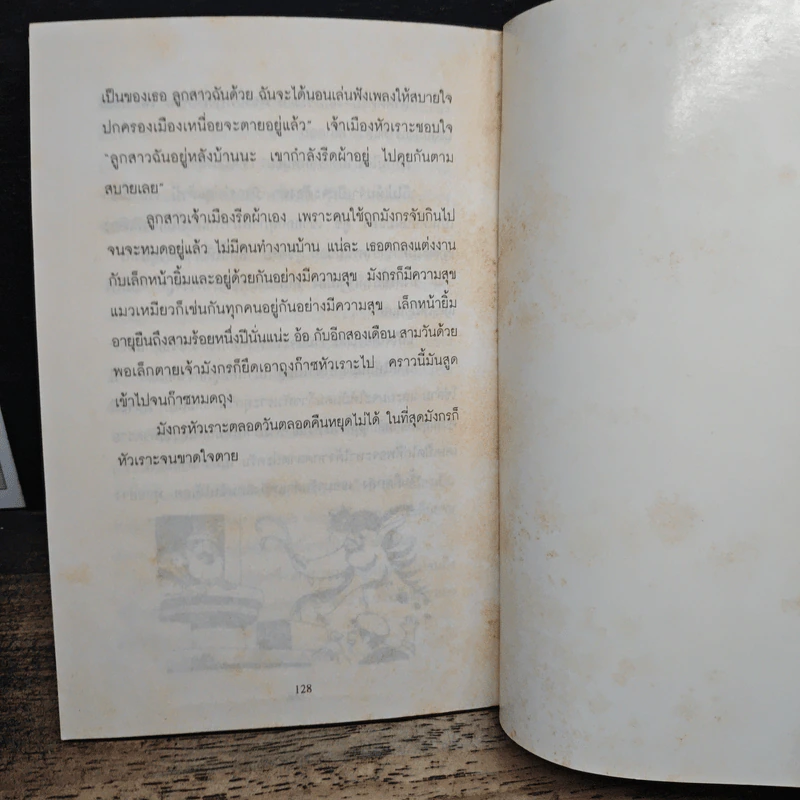 เป็นของเธอ ลูกสาวฉันด้วย ฉันจะได้นอนเล่นฟังเพลงให้สบายใจ
ปกครองเมืองเหนื่อยจะตายอยู่แล้ว” เจ้าเมืองหัวเราะชอบใจ
“ลูกสาวฉันอยู่หลังบ้านนะ เขากำลังรีดผ้าอยู่ ไปคุยกันตาม
สบายเลย”
ลูกสาวเจ้าเมืองรีดผ้าเอง เพราะคนใช้ถูกมังกรจับกินไป
จนจะหมดอยู่แล้ว ไม่มีคนทำงานบ้าน แน่ละ เธอตกลงแต่งงาน
กับเล็กหน้ายิ้มและอยู่ด้วยกันอย่างมีความสุข มังกรก็มีความสุข
แมวเหมียวก็เช่นกันทุกคนอยู่กันอย่างมีความสุข เล็กหน้ายิ้ม
อายุยืนถึงสามร้อยหนึ่งปีนั่นแน่ะ อ้อ กับอีกสองเดือน สามวันด้วย
พอเล็กตายเจ้ามังกรก็ยึดเอาถุงก๊าซหัวเราะไป คราวนี้มันสูด
เข้าไปจนก๊าซหมดถุง
มังกรหัวเราะตลอดวันตลอดคืนหยุดไม่ได้ ในที่สุดมังกรก็
หัวเราะจนขาดใจตาย
128